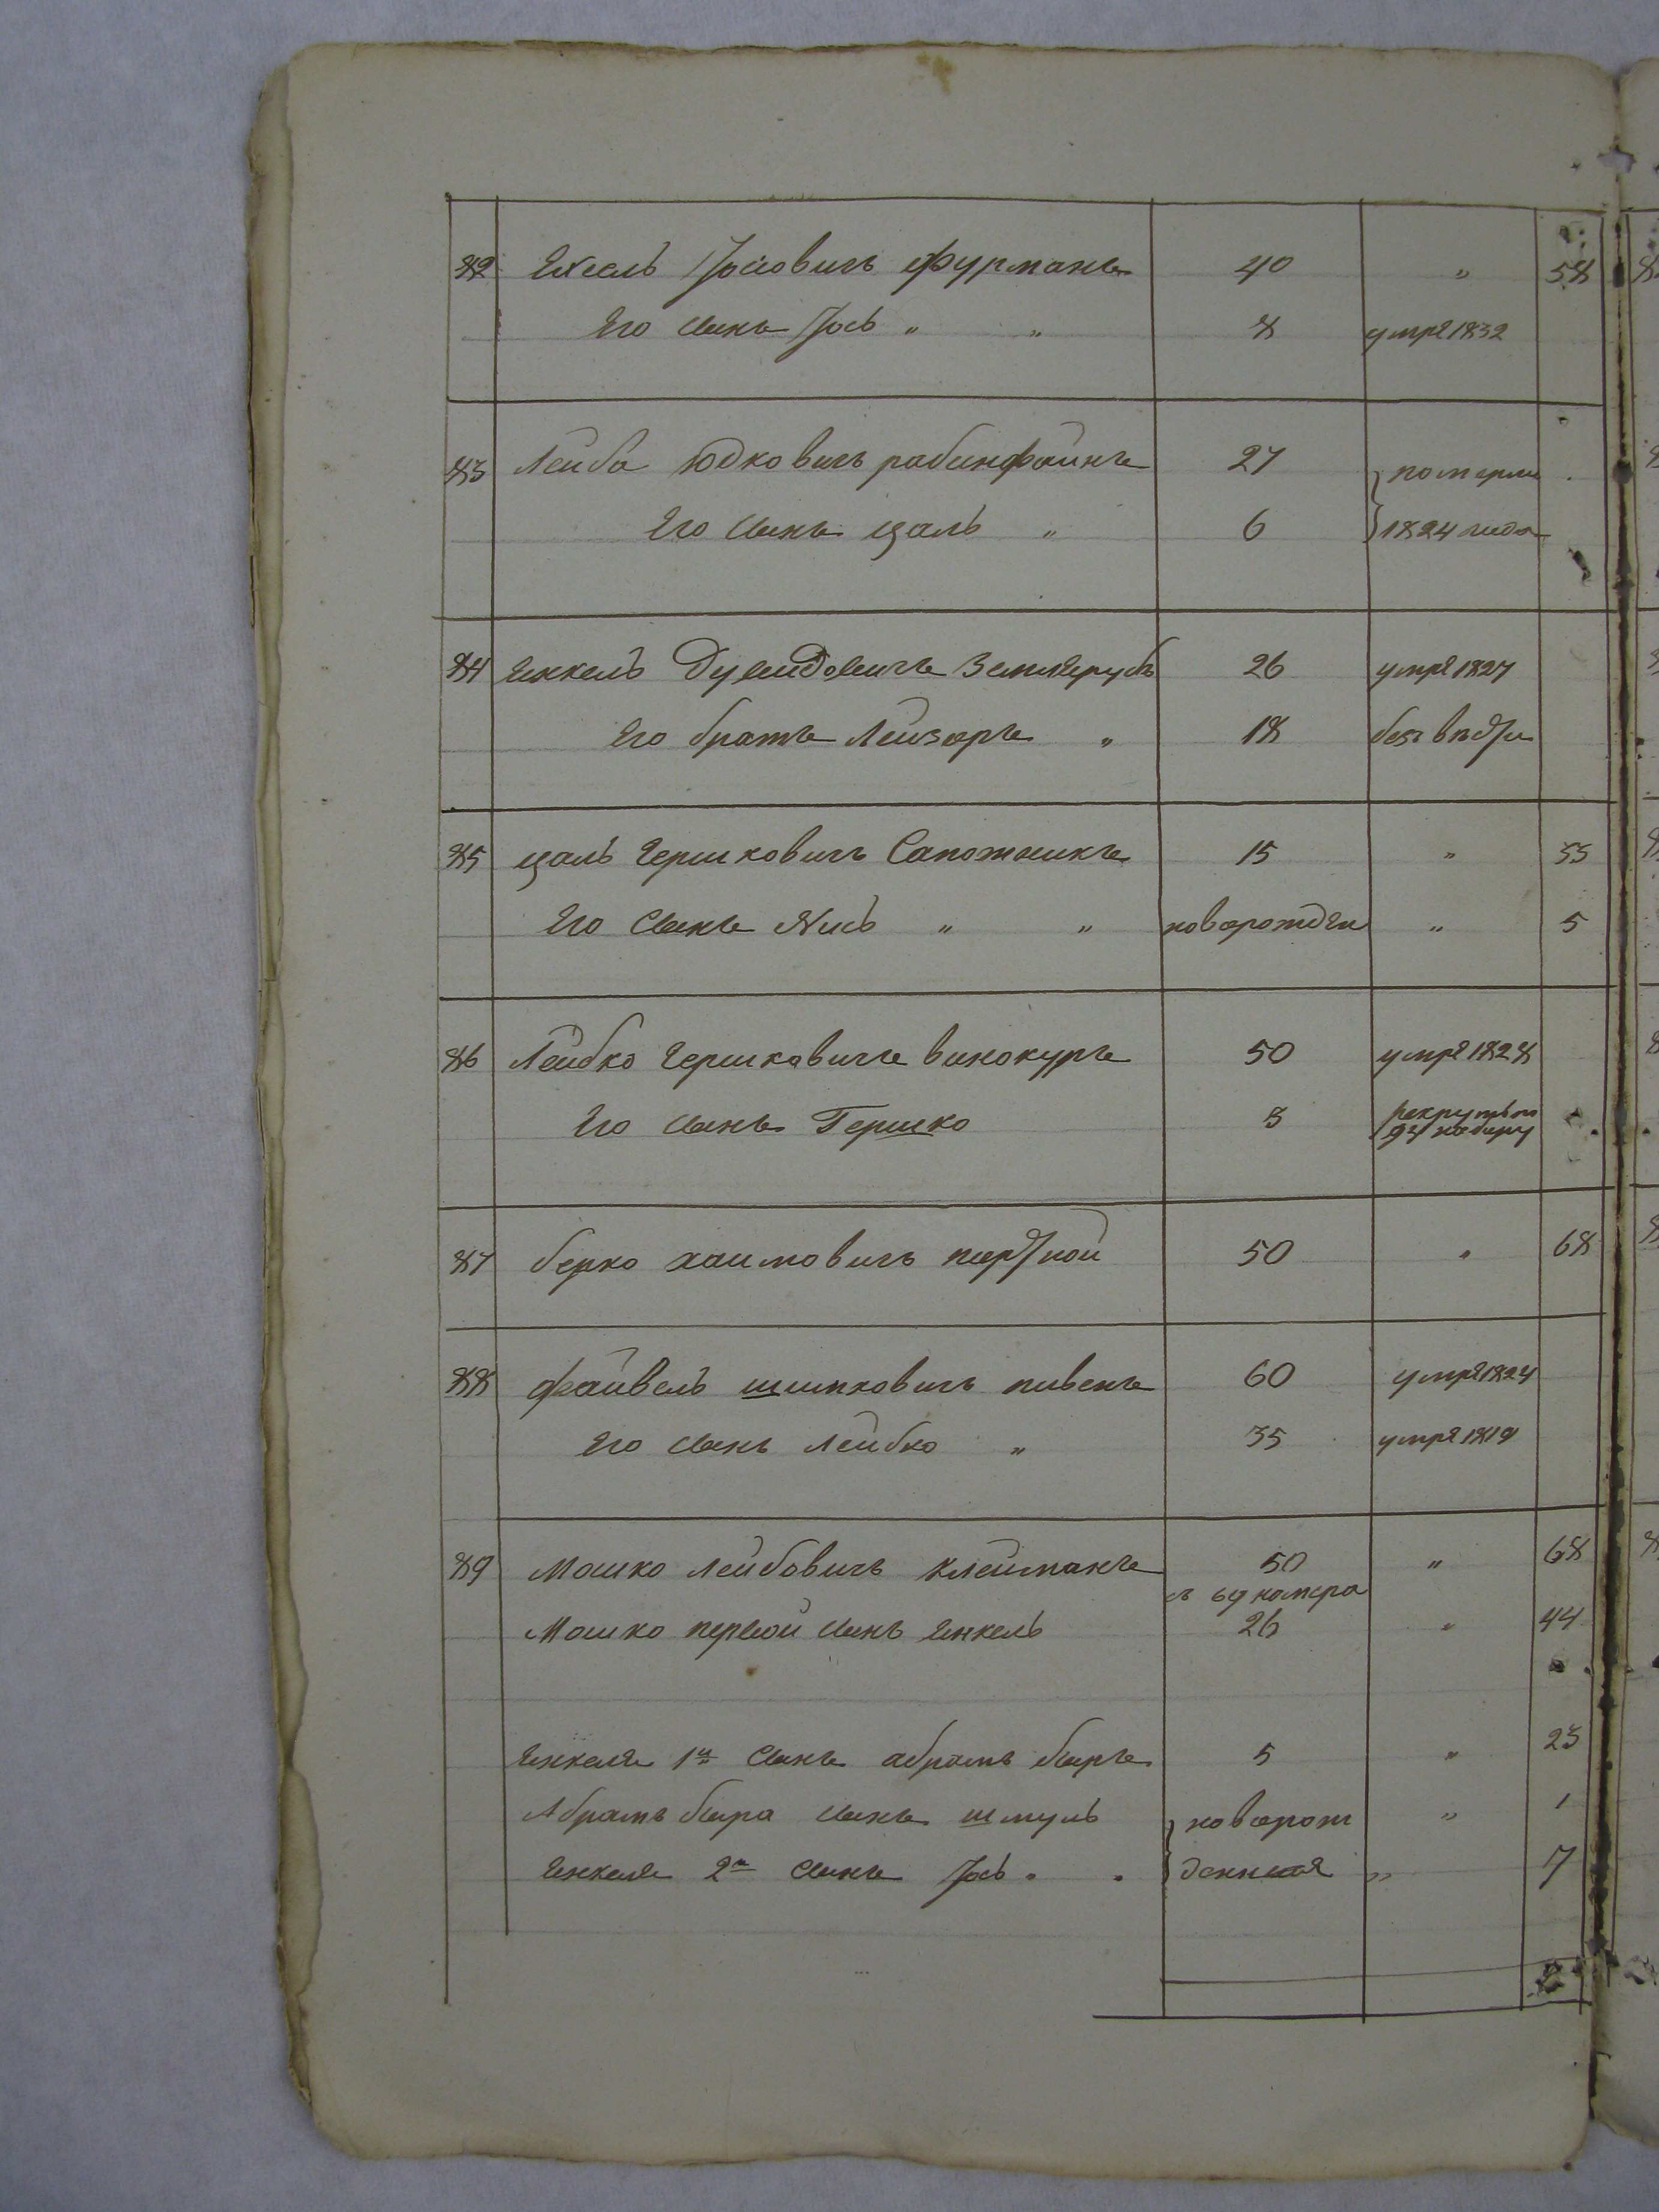 82 Ехсель Іосіовичъ Фурманъ 40 „ 58
Его сынъ Іось „ „ 8 умре 1832
83 Лейба Юдковичъ рабинфайнъ 27 померли
Его сынъ цаль „ 6 1824 года
84 Янкель Дувидовичъ Землерубъ 26 умре 1827
Его братъ Лейзоръ „ 18 безъ вѣд/и
85 цаль Гершковичъ Сапожникъ 15 „ 33
Его сынъ „ „ новорожден „ 5
86 Лейбко Гершковичъ винокуръ 50 умре 1828
Его сынъ Гершко 3 рекрутъ
набору
87 берко хаимовичъ 50 „ 68
88 файвель шимковичъ пивень 60 умре 1824
Его сынъ Лейбко „ 35 умре 1819
89 Мошко Лейбовичъ клейманъ 50 „ 68
съ 69 номера
Мошко первой сынъ Енкель 26 „ 44
Енкеля 1й сынъ абрамъ беръ 5 „ 23
Абрамъ бера сынъ шмуль новорож „ 1
Енкеля 2й сынъ Іось „ „ денные „ 7